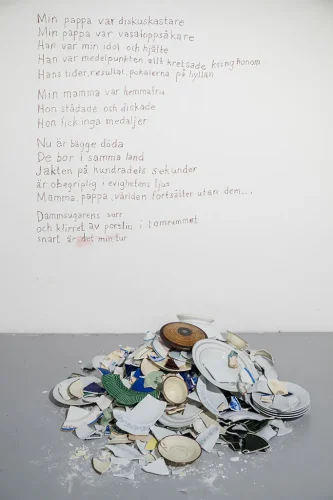 Min pappa var diskuskastare
Min pappa var vasaloppsåkare
Han var min idol och hjälte
Han var medelpunkten allt kretsade kring honom
Hans tider, resultat, pokalerna på hyllan
Min mamma var hemmafru
Hon städade och diskade
Hon fick inga medaljer
Nu är bägge döda
De bor i samma land
Jakten på hundradels sekunder
är obegriplig i evighetens ljus
Mamma, pappa, världen fortsätter utan dem...
Dammsugarens surr
och klirret av porslin i tomrummet
snart är det min tur